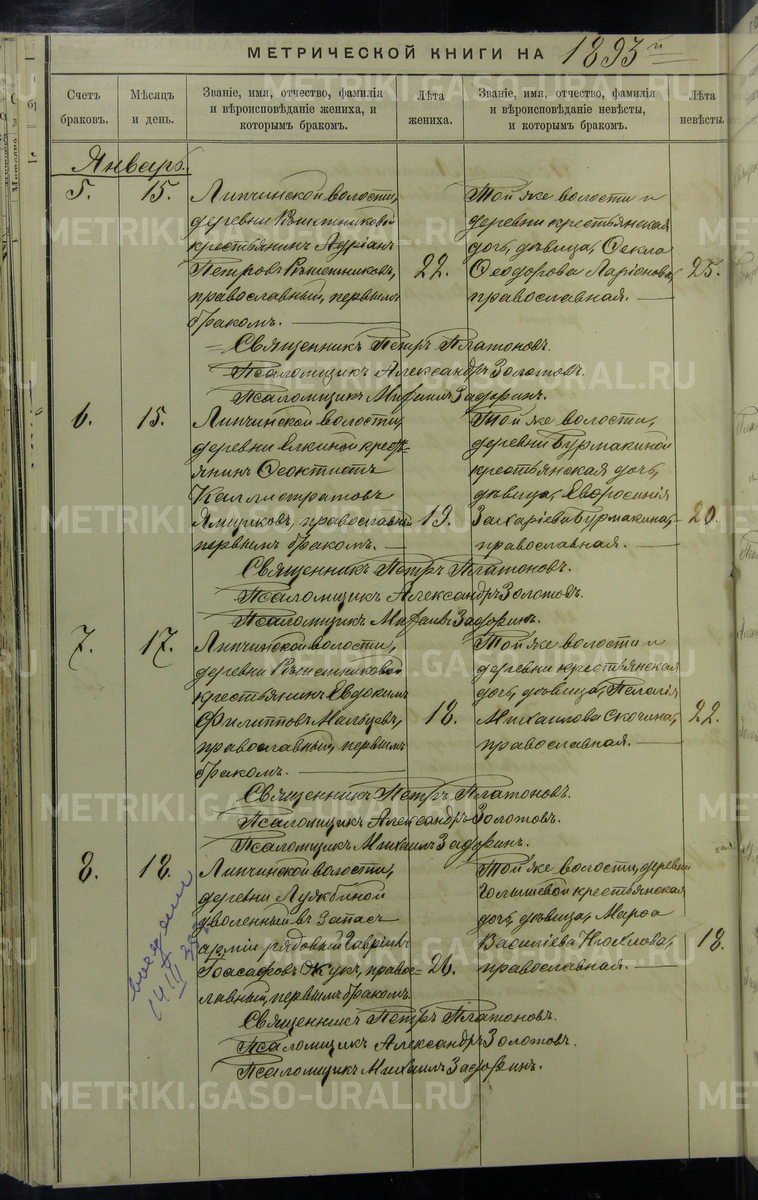 МЕТРИЧЕСКОЙ КНИГИ НА 1893 й
Счетъ браковъ.
Мѣсяцъ и день.
Званіе, имя, отчество, фамилія и вѣроисповѣданіе жениха, и которымъ бракомъ.
Лѣта жениха.
Званіе, имя, отчество, фамилія и вѣроисповѣданіе невѣсты, и которымъ бракомъ.
Лѣта невѣсты.
Январь.
5. 15.
Липчинской волости,
деревни Рѣшетниковой
крестьянинъ Адріанъ
Петровъ Рѣшетниковъ,
православный, первымъ
бракомъ.
22.
Той же волости и
деревни крестьянская
дочь, дѣвица, Ѳекла
Ѳеодорова Ларіонова,
православная.
25.
Священникъ Петръ Платоновъ.
Псаломщикъ Александръ Золотовъ.
Псаломщикъ Михаилъ Задоринъ.
6. 15.
Липчинской волости,
деревни Елкиной кресть-
янинъ Ѳеоктистъ
Каллистратовъ
Ямщиковъ, православный
первымъ бракомъ.
19.
Той же волости,
деревни Бурмакиной
крестьянская дочь,
дѣвица, Евфросинія
Захаріева Бурмакина,
православная.
20.
Священникъ Петръ Платоновъ.
Псаломщикъ Александръ Золотовъ.
Псаломщикъ Михаилъ Задоринъ.
7. 17.
Липчинской волости,
деревни Рѣшетниковой
крестьянинъ Евдокимъ
Филипповъ Мальцевъ,
православный, первымъ
бракомъ.
18.
Той же волости и
деревни крестьянская
дочь, дѣвица, Пелагія
Михаилова Скочина,
православная.
22.
Священникъ Петръ Платоновъ.
Псаломщикъ Александръ Золотовъ.
Псаломщикъ Михаилъ Задоринъ.
8. 18.
Липчинской волости,
деревни Лужбиной
уволенный въ запасъ
арміи рядовой Гавріилъ
Іоасафовъ Жукъ, право-
славный, первымъ бракомъ.
26.
Той же волости, деревни
Голышевой крестьянская
дочь, дѣвица, Марѳа
Василіева
православная.
18.
Священникъ Петръ Платоновъ.
Псаломщикъ Александръ Золотовъ.
Псаломщикъ Михаилъ Задоринъ.
METRIKI.GASO-URAL.RU